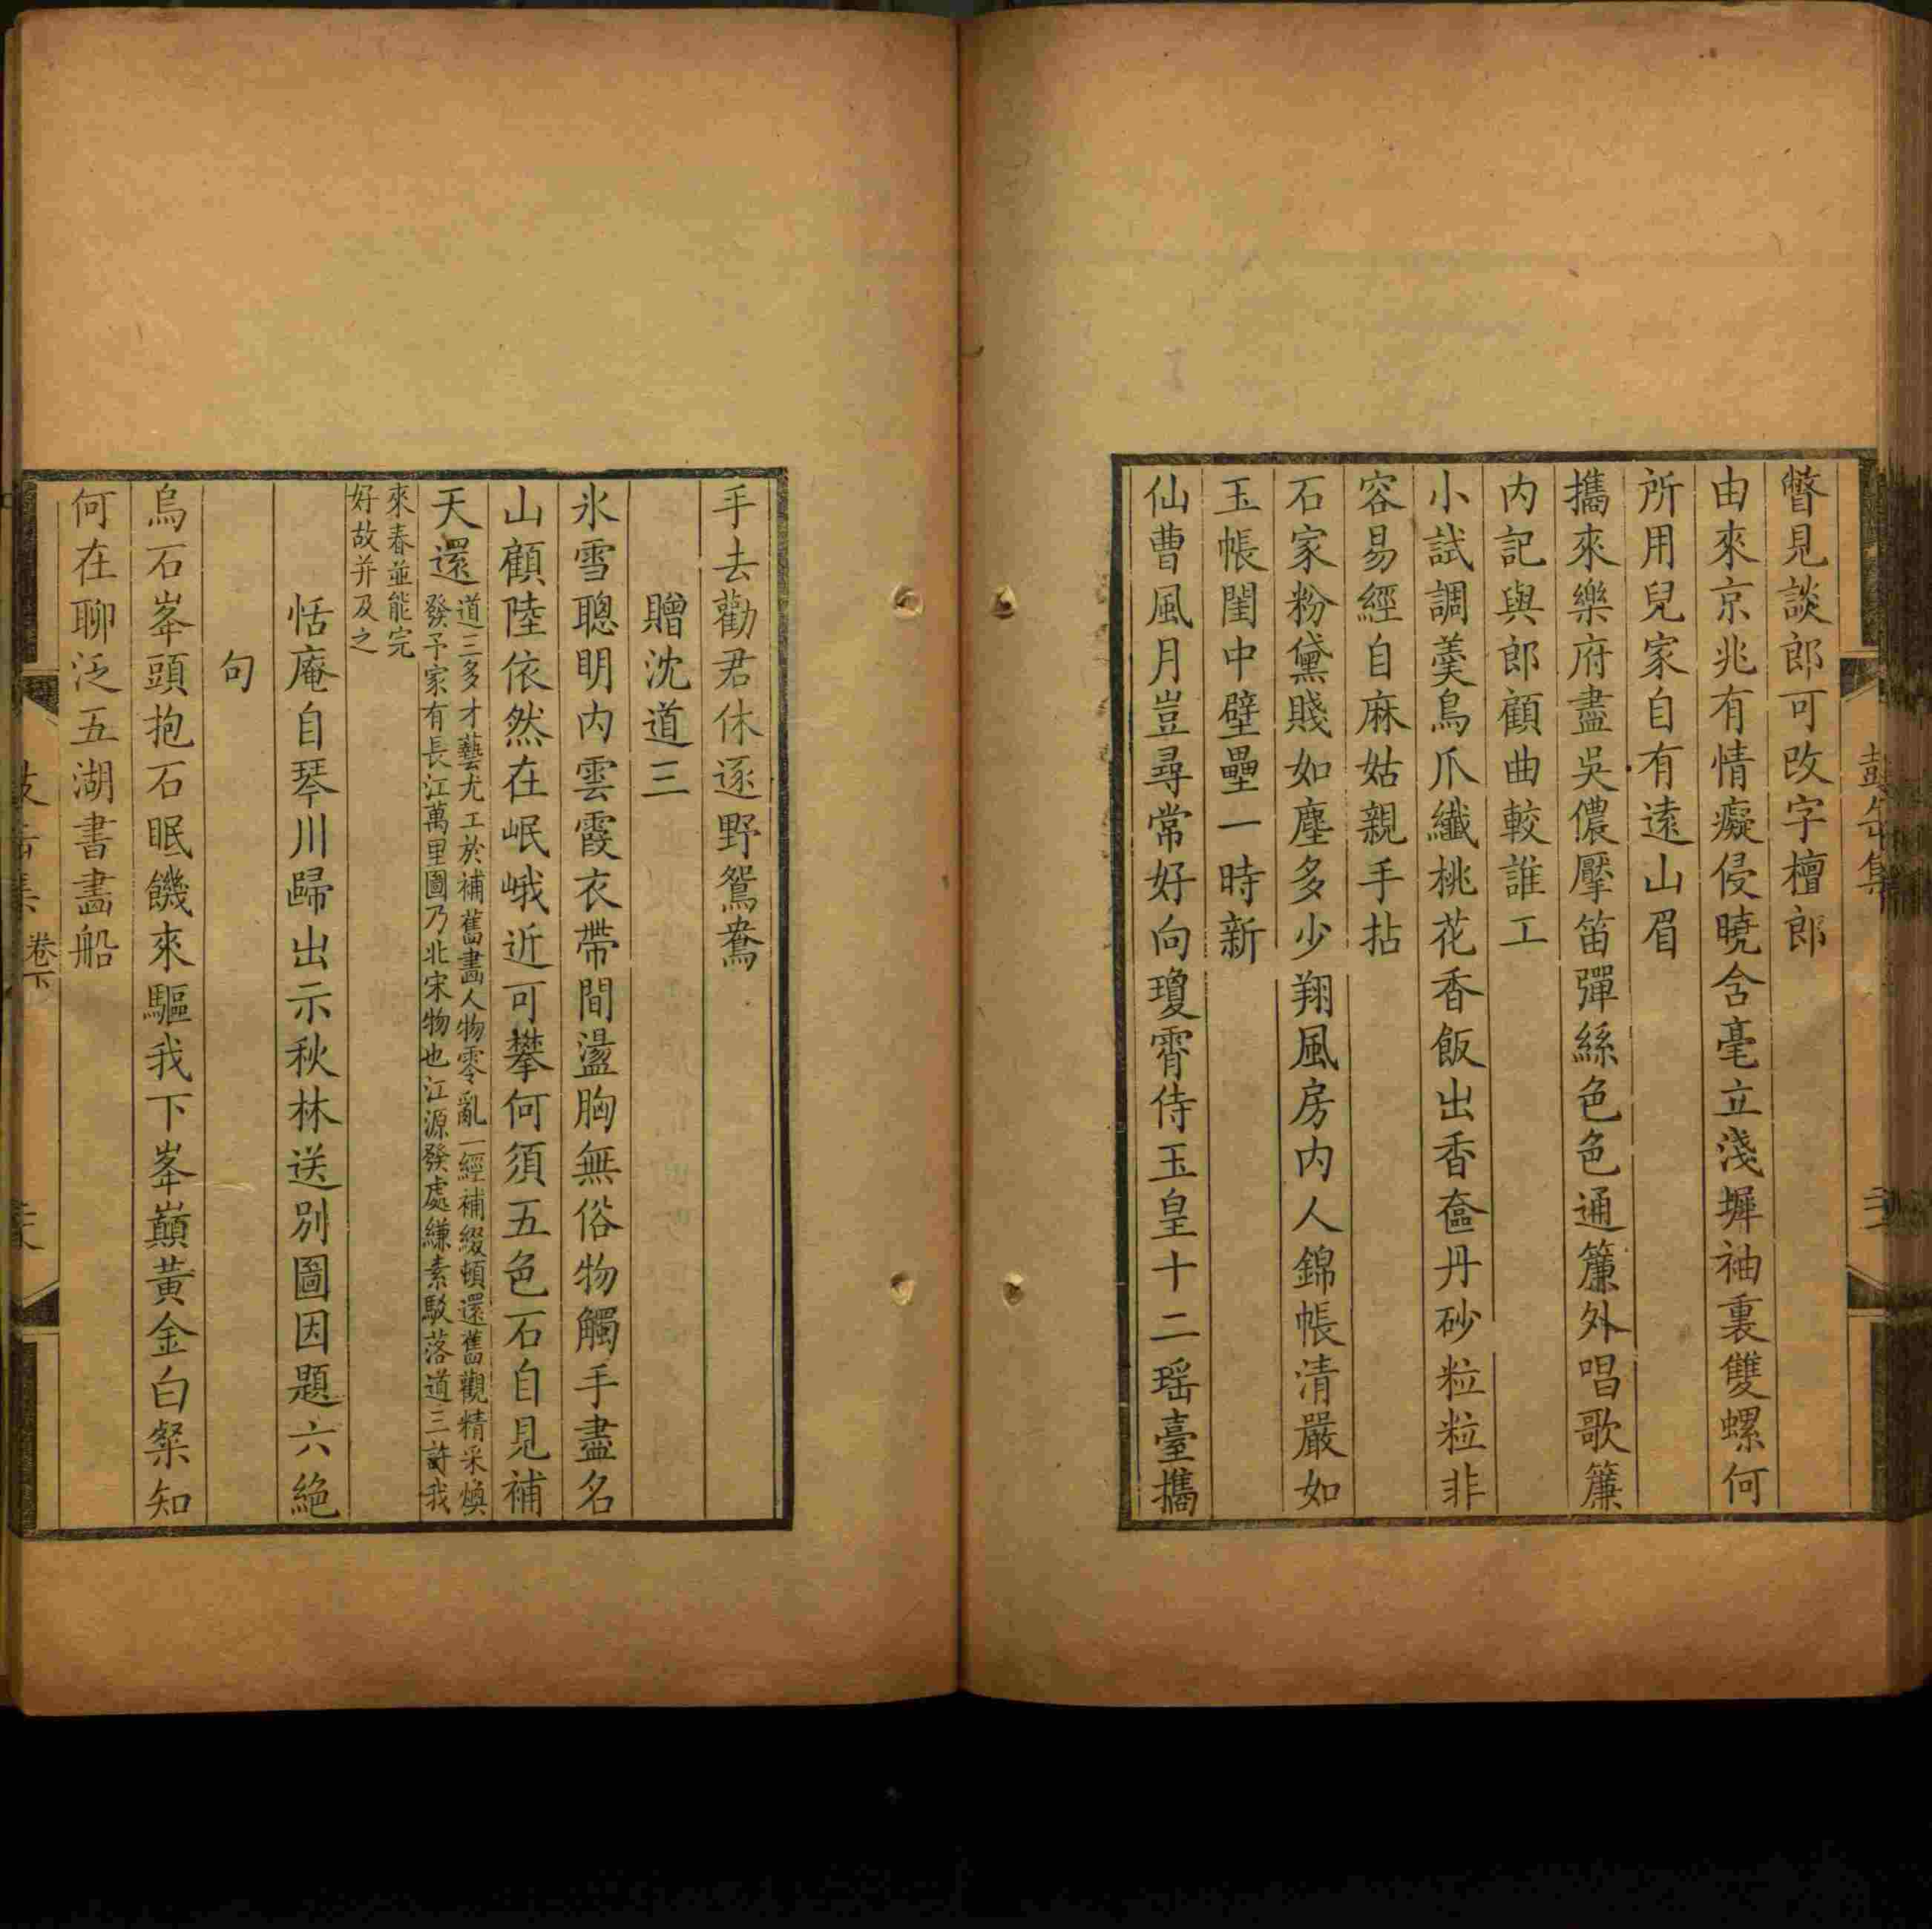 瞥見談郎可改字檀郎
由來京兆有情癡侵曉含毫立淺墀袖裏雙螺何
所用兒家自有遠山眉
攜來樂府盡吳儂擪笛彈絲色色通簾外唱歌簾
内記與郎顧曲較誰工
小試調羹鳥爪纖桃花香飯出香奩丹砂粒粒非
容易經自麻姑親手拈
石家粉黛賤如塵多少翔風房内人錦帳清嚴如
玉帳閨中壁壘一時新
仙曹風月豈尋常好向瓊霄侍玉皇十二瑶臺攜
手去勸君休逐野鴛鴦
贈沈道三
氷雪聰明内雲霞衣帶間盪胸無俗物觸手盡名
山顧陸依然在岷峨近可攀何須五色石自見補
天還
道三多才藝尤工於補舊畫人物零亂一經補綴頓還舊觀精采煥
發予家有長江萬里圖乃北宋物也江源發處縑素駁落道三許我
來春並能完
好故并及之
恬庵自琴川歸出示秋林送別圖因題六絶
句
烏石峯頭抱石眠饑來驅我下峯巔黃金白粲知
何在聊泛五湖書畫船
卷下